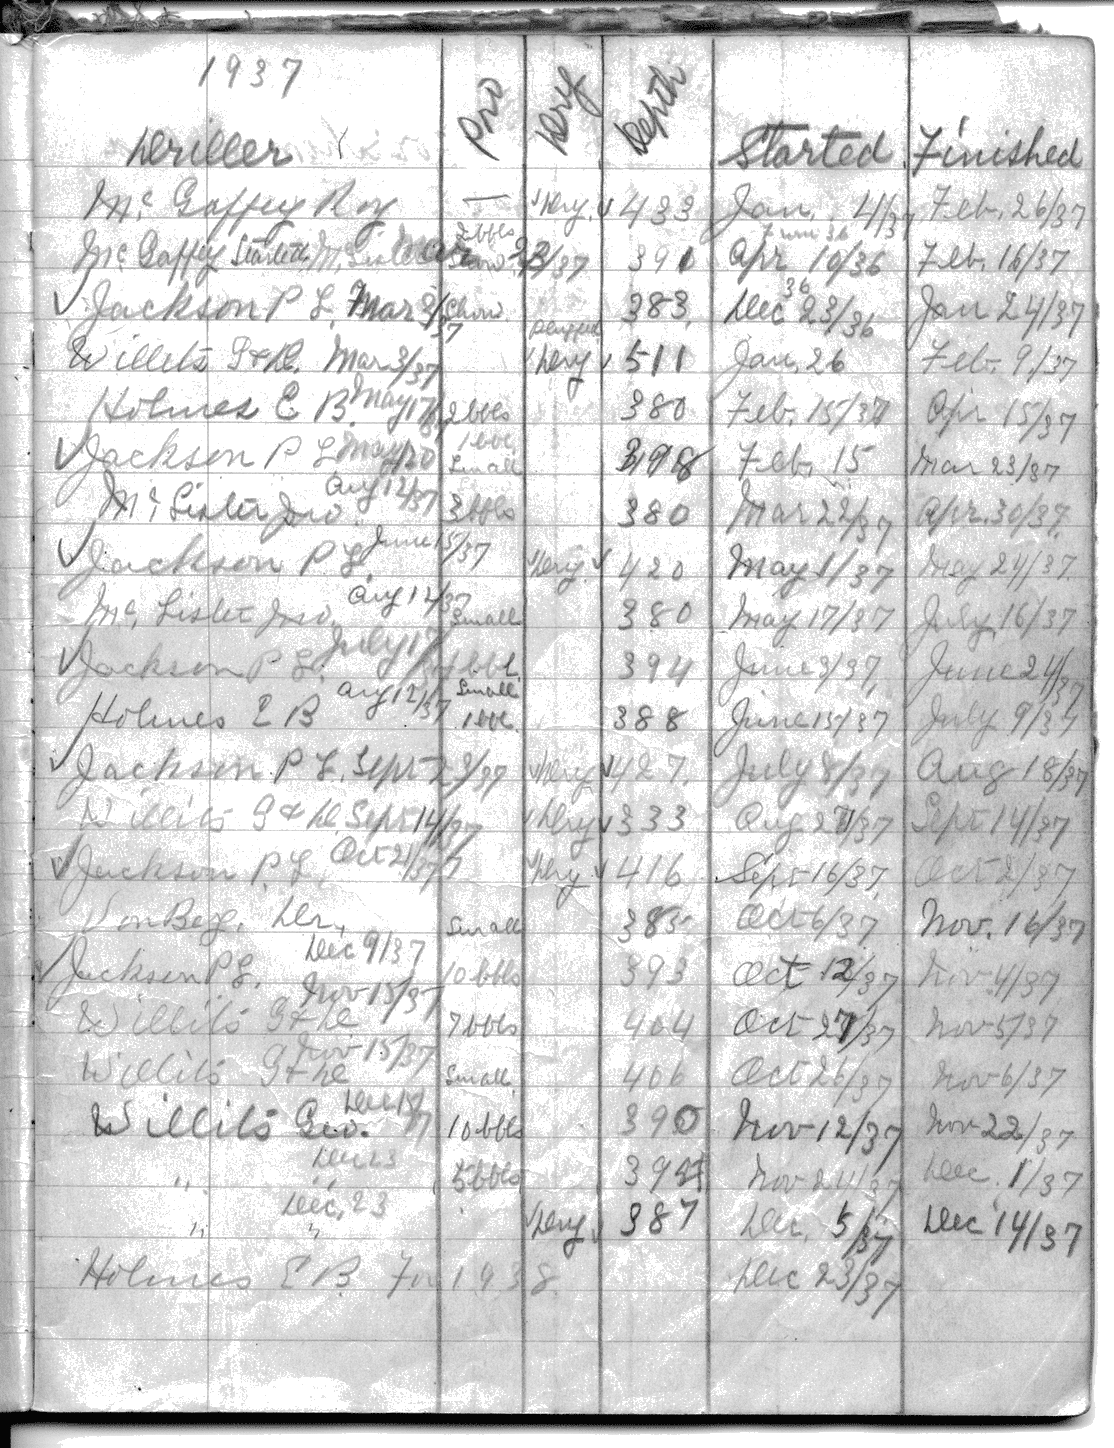 1937
Driller Pro Dry Depth Started Finished
Mc Gaffey Roy — Dry 433 Jan. 4/37 Feb. 26/37
Mc Gaffey 2 bbls 391 Apr 10/36 Feb. 16/37
Jackson P L. Mar 3/37 Show 383 Dec 36 23/36 Jan 24/37
Willits G & D. Mar 3/37 plugged Dry 511 Jan. 26 Feb. 9/37
Holmes E B. May 17 2 bbls 380 Feb. 15/37 Apr 15/37
Jackson P L May 20 1 bbl Small 398 Feb. 15 Mar 23/37
Mc Lister Jno. Aug 12/37 3 bbls 380 Mar 22/37 Apr. 30/37
Jackson P L. June 15/37 Dry 420 May 1/37 May 24/37
Mc Lister Jno. Aug 12/37 Small 380 May 17/37 July 16/37
Jackson P L. July 17 1 bbl. 394 June 3/37 June 24/37
Holmes E B Aug 12/37 Small 1 bbl 388 June 15/37 July 9/37
Jackson P L. Sept 23/37 Dry 427 July 8/37 Aug 18/37
Willits G & D Sept 14/37 Dry 333 Aug 27/37 Sept 14/37
Jackson P. L. Oct 21/37 Dry 416 Sept 16/37 Oct 2/37
Small 385 Oct 6/37 Nov. 16/37
Jackson P L. Dec 9/37 10 bbls 393 Oct 12/37 Nov 4/37
Willits G & D Nov 15/37 7 bbls 404 Oct 27/37 Nov 5/37
Willits G & D Nov 15/37 Small 406 Oct 26/37 Nov 6/37
Willits Geo. 10 bbls 390 Nov 12/37 Nov 22/37
" " Dec 23 5 bbls Nov 24/37 Dec. 1/37
" " Dec. 23 Dry 387 Dec. 5/37 Dec 14/37
Holmes E B. For 1938. Dec 23/37